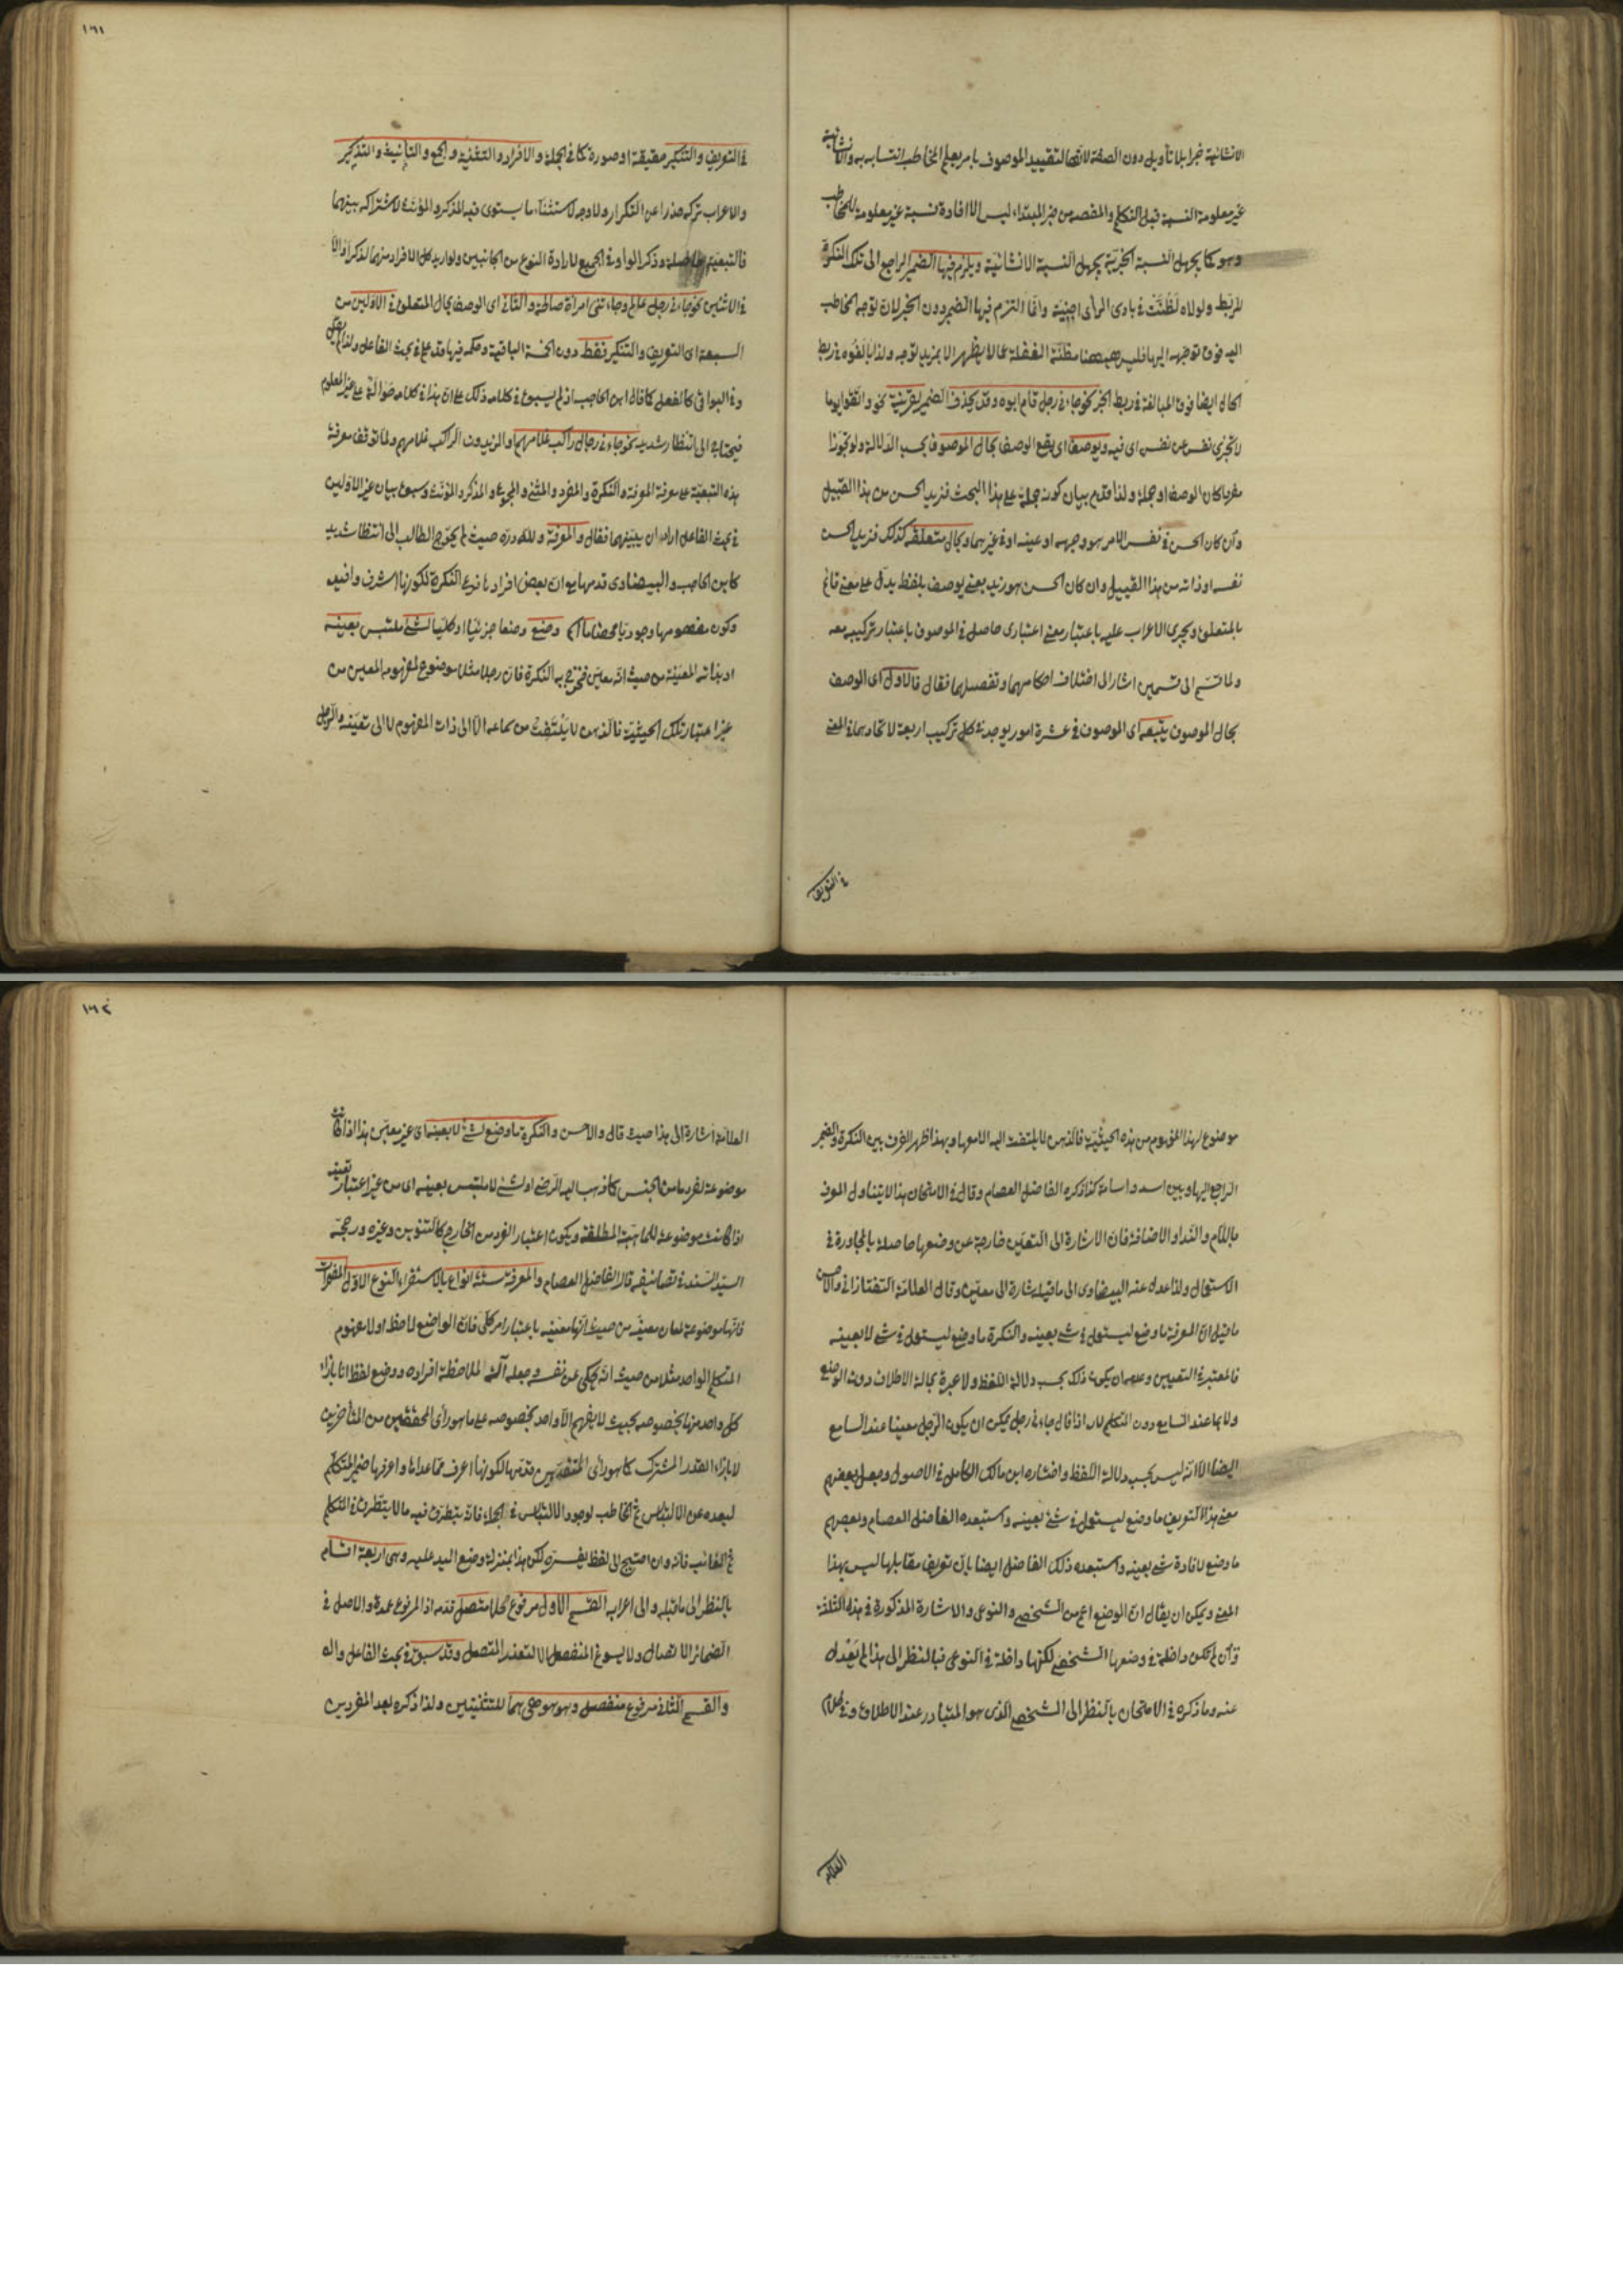 الانشائية خبرا بلا تأويل دون الصفة لانها لتقييد الموصوف بامر يعلم المخاطب انتسابه به والانشائية
غير معلومة النسبة قبل التكلم والمقصد من خبر المبتداء ليس الا افادة نسبة غير معلومة للمخاطب
وهو كما يجهل النسبة الخبرية يجهل النسبة الانشائية ويلزم فيها الضمير الراجع الى تلك النكرة
للربط ولولاه لظنت في بادى الرأى اجنبية وانما التزم فيها الضمير دون الخبر لان توجه المخاطب
اليه فوق توجهه اليها فليس ههنا مظنة الغفلة عما لا يظهر الا بمزيد توجه ولذا بالغوا في ربط
الحال ايضا فوق المبالغة في ربط الخبر نحو جاءني رجل قام ابوه وقد يحذف الضمير لقرينة نحو واتقوا يوما
لا تجزى نفس عن نفس اى فيه ويوصف اى يقع الوصف بحال الموصوف بحسب الدلالة ولو تجوزا
مفردا كان الوصف او جملة ولذا قدم بيان كونه جملة على هذا البحث فزيد الحسن من هذا القبيل
وان كان الحسن في نفس الامر هو وجهه او عينه او غيرهما وبحال متعلقه كذلك فزيد الحسن
نفسه او ذاته من هذا القبيل وان كان الحسن هو زيد يعنى يوصف بلفظ يدل على معنى قائم
بالمتعلق ويجرى الاعراب عليه باعتبار معنى اعتبارى حاصل في الموصوف باعتبار تركيبه معه
ولما قسم الى قسمين اشار الى اختلاف احكامهما وتفصيلها فقال فالاول اى الوصف
بحال الموصوف يتبعه اى الموصوف في عشرة امور يوجد في كل تركيب اربعة لاتحادهما في المعنى
في التعريف
١٦١
في التعريف والتنكير حقيقة او صورة كما في الجملة والافراد والتثنية والجمع والتأنيث والتذكير
والاعراب تركه حذرا عن التكرار ولا وجه لاستثناء ما يستوى فيه المذكر والمؤنث لاشتراكه بينهما
فالتبعية حاصلة وذكر الواو في الجميع لارادة النوع من الجانبين ولو اريد كل الافراد منهما لذكر او الا
في الاثنين نحو جاءني رجل عالم وجاءتنى امرأة صالحة والثانى اى الوصف بحال المتعلق في الاولين من
السبعة اى التعريف والتنكير فقط دون الخمسة الباقية وحكمه فيها قد علم في بحث الفاعل ولذا لم يقل
وفي البواقى كالفعل كما قال ابن الحاجب اذ لم يسبق في كلامه ذلك على ان هذا في كلامه حوالة على غير المعلوم
فيحتاج الى انتظار شديد نحو جاءني رجال راكب غلامهم والزيدون الراكب غلامهم ولما توقف معرفة
هذه التبعية على معرفة المعرفة والنكرة والمفرد والمثنى والمجموع والمذكر والمؤنث وسبق بيان غير الاولين
في بحث الفاعل اراد ان يبينهما فقال والمعرفة ولله دره حيث لم يحوج الطالب الى انتظار شديد
كابن الحاجب والبيضاوى قدمها مع ان بعض افرادها فرع النكرة لكونها اشرف وافيد
وكون مفهومها وجوديا محضا ما وضع وضعا جزئيا او كليا لشئ ملتبس بعينه
او بذاته المعينة من حيث انه معين فخرج به النكرة فان رجلا مثلا موضوع لمفهومه المعين من
غير اعتبار تلك الحيثية فالذهن لا يلتفت من سماعه الا الى ذات المفهوم لا الى تعينه والرجل
موضوع لهذا المفهوم من هذه الحيثية فالذهن لا يلتفت اليه الا معها وبهذا ظهر الفرق بين النكرة والضمير
الراجع اليها وبين اسد واسامة كذا ذكره الفاضل العصام وقال في الامتحان هذا لا يتناول المعرف
باللام والنداء والاضافة فان الاشارة الى التعين خارجة عن وضعها حاصلة بالمجاورة في
الاستعمال ولذا عدل عنه البيضاوى الى ما فيه اشارة الى معين وقال العلامة التفتازانى والاحسن
ما قيل ان المعرفة ما وضع ليستعمل في شئ بعينه والنكرة ما وضع ليستعمل في شئ لا بعينه
فالمعتبر في التعيين وعدمه ان يكون ذلك بحسب دلالة اللفظ ولا عبرة بحالة الاطلاق دون الوضع
ولا بما عند السامع دون المتكلم لانه اذا قال جاءني رجل يمكن ان يكون الرجل معينا عند السامع
ايضا الا انه ليس بحسب دلالة اللفظ واختاره ابن مالك الكامل في الاصول وجعل بعضهم
معنى هذا التعريف ما وضع ليستعمل في شئ بعينه واستبعده الفاضل العصام وبعضهم
ما وضع لافادة شئ بعينه واستبعده ذلك الفاضل ايضا بان تعريف مقابلها ليس بهذا
المعنى ويمكن ان يقال ان الوضع اعم من الشخصى والنوعى والاشارة المذكورة في هذه الثلثة
وان لم تكن داخلة في وضعها الشخصى لكنها داخلة في النوعى فبالنظر الى هذا لم يعدل
عنه وما ذكره في الامتحان بالنظر الى الشخصى الذى هو المتبادر عند الاطلاق وفي كلام
العلامة
١٦٢
العلامة اشارة الى هذا حيث قال والاحسن والنكرة ما وضع لشئ لا بعينه اى غير معين هذا اذا كانت
موضوعة لفرد ما من الجنس كما ذهب اليه الرضى او لشئ لا ملتبس بعينه اى من غير اعتبار تعينه
اذا كانت موضوعة للماهية المطلقة ويكون اعتبار الفرد من الخارج كالتنوين وغيره ورجحه
السيد السند في تصانيفه قال الفاضل العصام والمعرفة ستة انواع بالاستقراء النوع الاول المضمرات
فانها موضوعة لمعان معينة من حيث انها معينة باعتبار امر كلى فان الواضع لاحظ اولا مفهوم
المتكلم الواحد مثلا من حيث انه يحكى عن نفسه وجعله آلة لملاحظة افراده ووضع لفظ انا بازاء
كل واحد منها بخصوصه بحيث لا يفهم الا واحد بخصوصه على ما هو رأى المحققين من المتأخرين
لا بازاء القدر المشترك كما هو رأى المتقدمين قدمها لكونها اعرف مما عداها واعرفها ضمير المتكلم
لبعده عن الالتباس ثم المخاطب لوجود الالتباس في الجملة فانه يتطرق فيه ما لا يتطرق في المتكلم
ثم الغائب فانه وان احتيج الى لفظ يفسره لكن هذا بمنزلة وضع اليد عليه وهى اربعة اقسام
بالنظر الى ما قبله والى اعرابه القسم الاول مرفوع محلا متصل قدمه اذا المرفوع عمدة والاصل في
الضمائر الاتصال ولا يسوغ المنفصل الا لتعذر المتصل وقد سبق في بحث الفاعل واله
والقسم الثانى مرفوع منفصل وهو هو هى هما للتثنيتين ولذا ذكره بعد المفردين